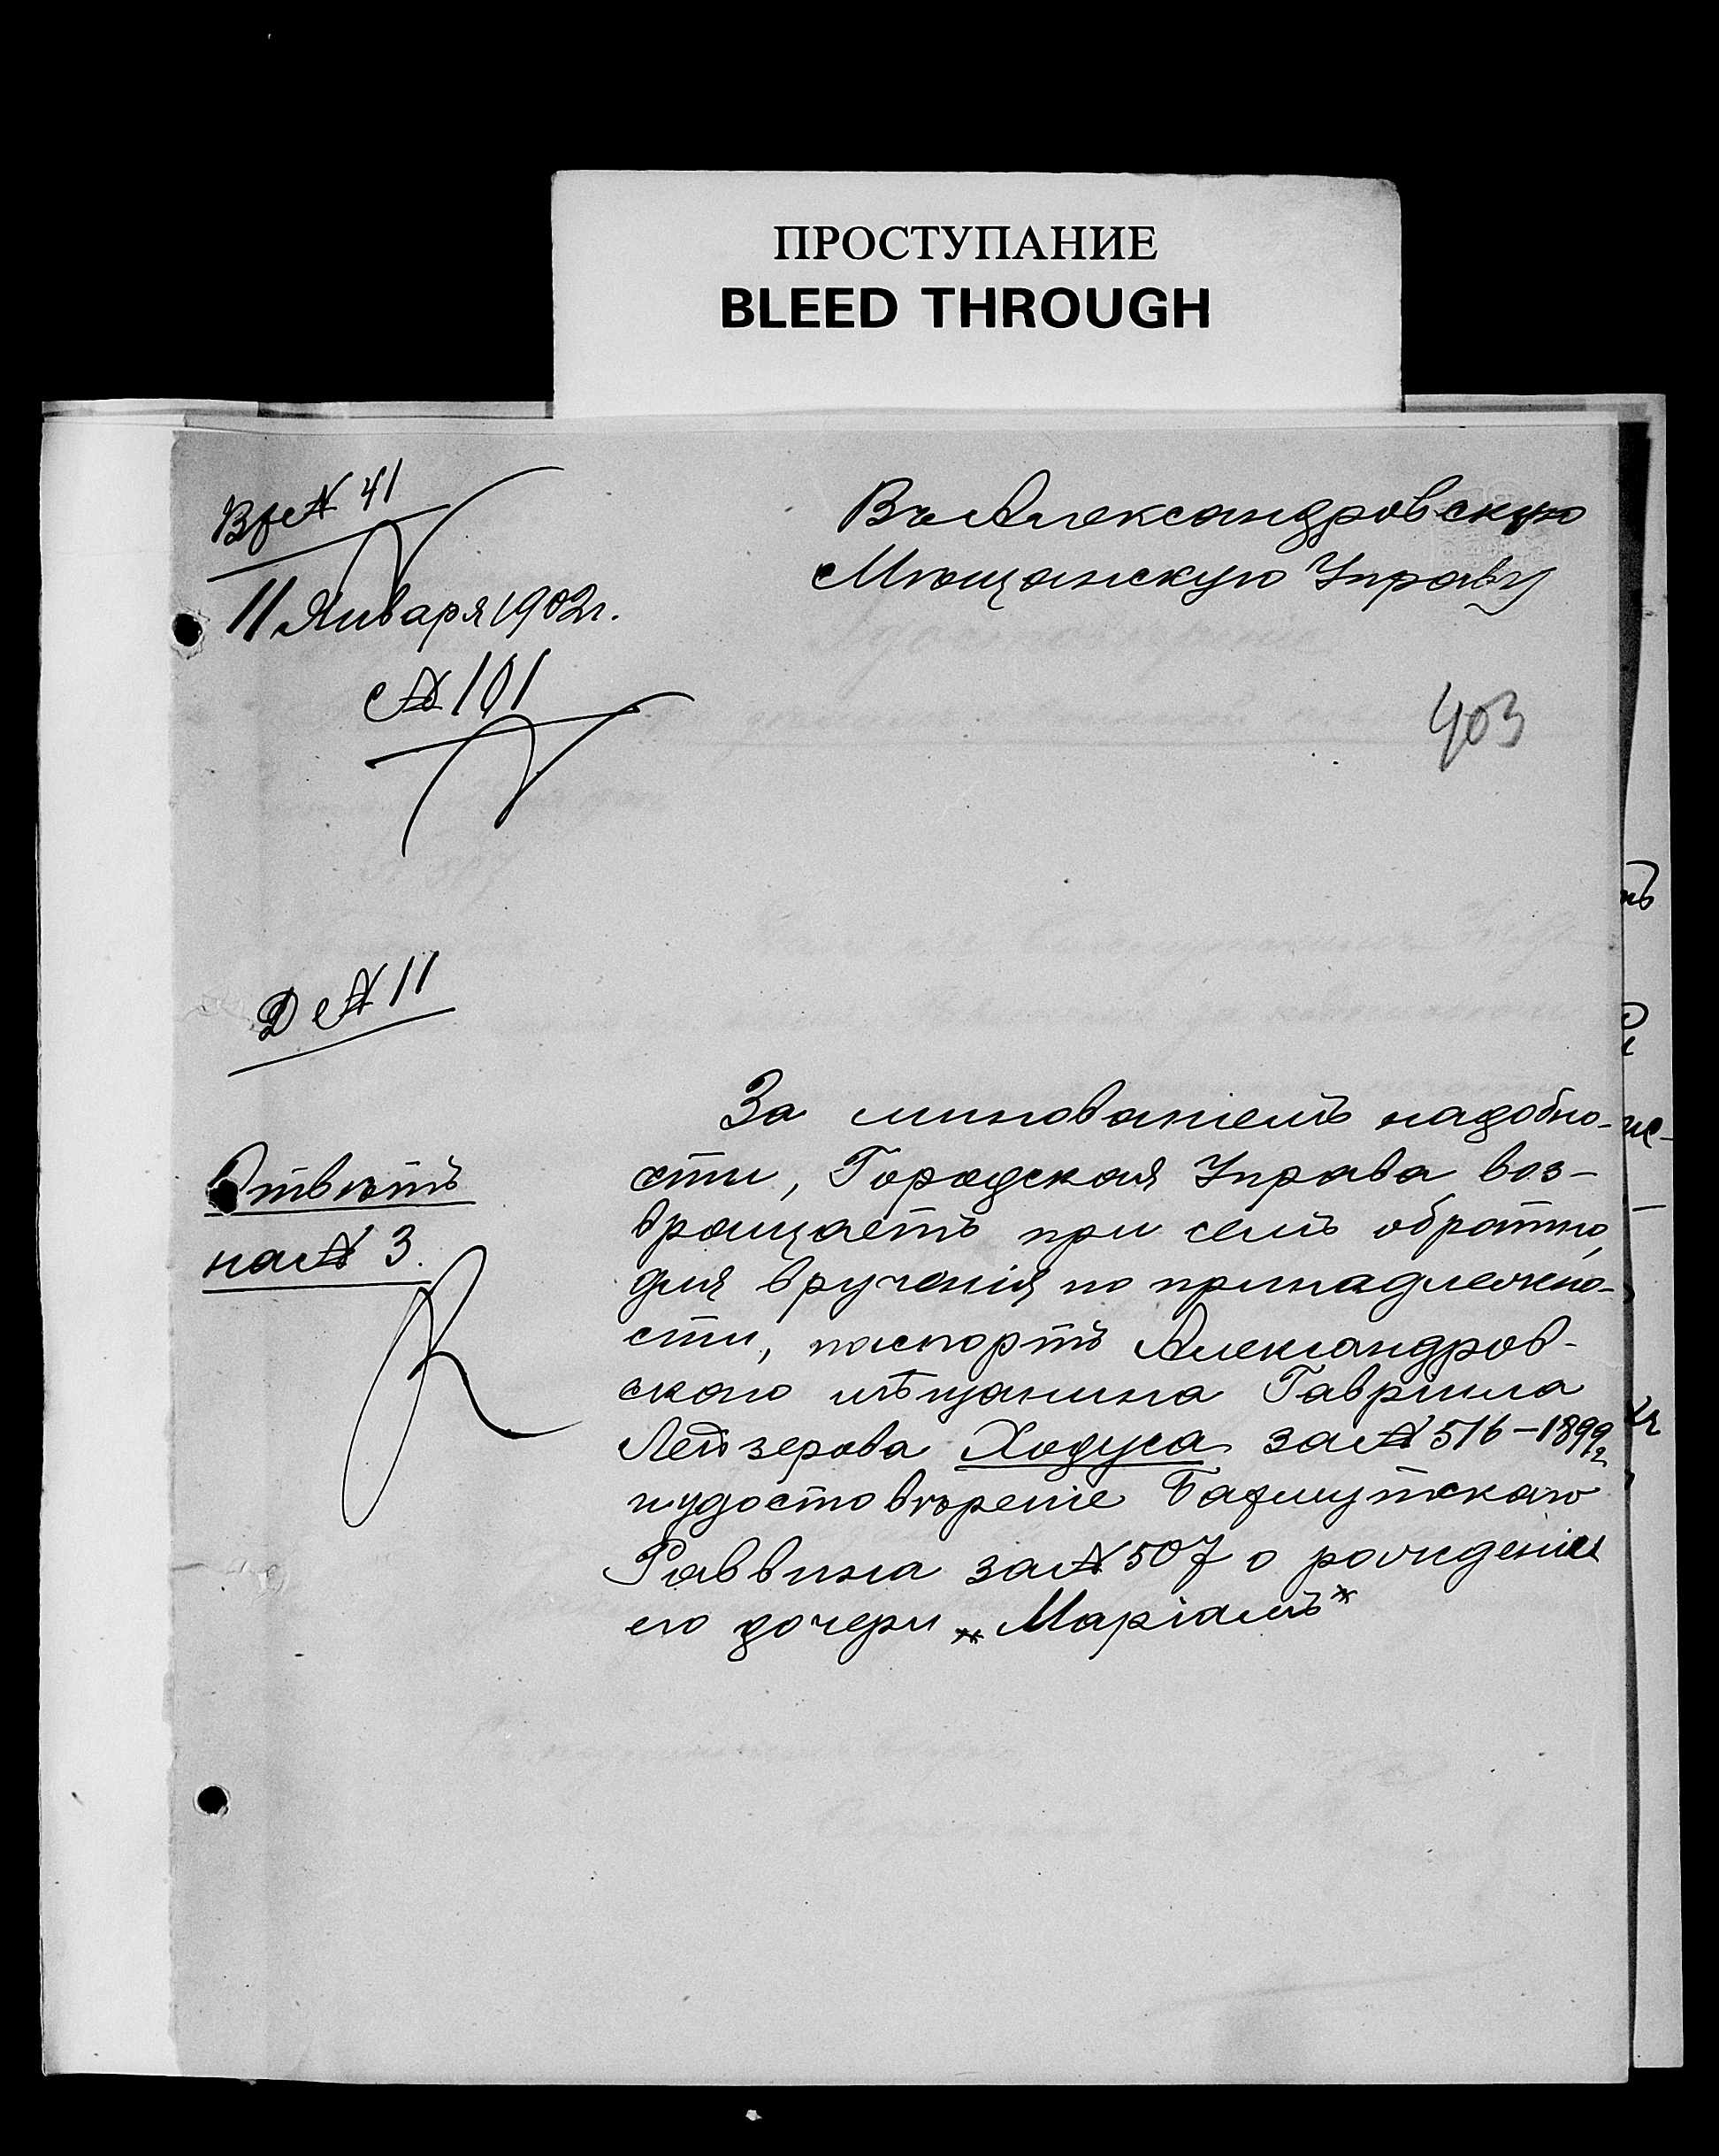 ПРОСТУПАНИЕ
BLEED THROUGH
Вх № 41
11 Января 1902 г.
№ 101
Въ Александровскую
Мѣщанскую Управу
403
Д № 11
Отвѣтъ
на № 3.
За минованіемъ надобно-
сти, Городская Управа воз-
вращаетъ при семъ обратно,
для врученія по принадлежно-
сти, паспортъ Александров-
скаго мѣщанина Гавріила
Лейзерова Ходуса за № 516 – 1899 г.
и удостовѣреніе Бахмутскаго
Раввина за № 507 о рожденіи
его дочери „Маріамъ"